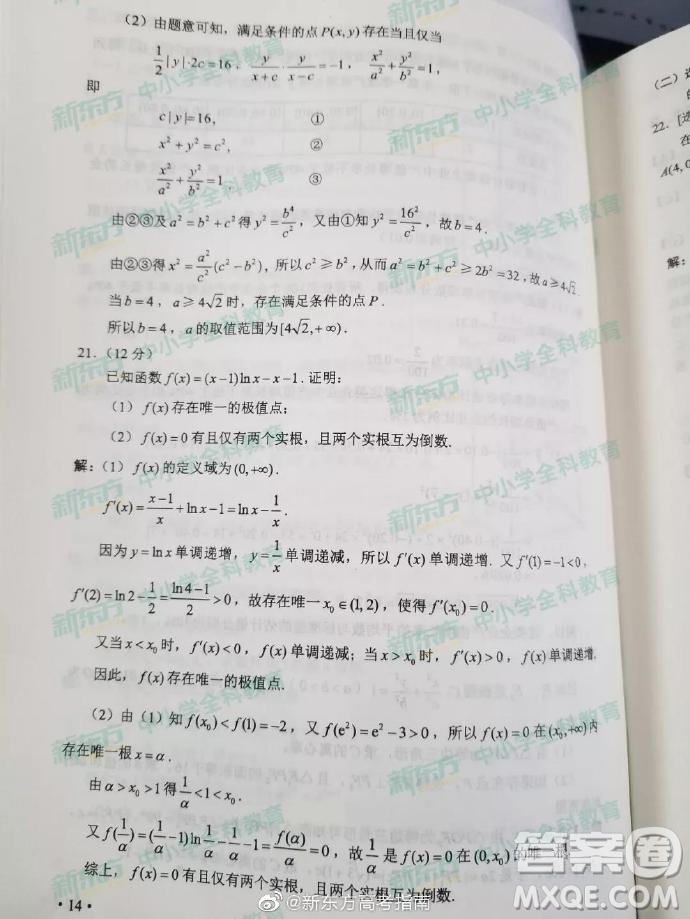 (2) 由题意可知，满足条件的点 P(x, y) 存在当且仅当
1/2|y|·2c=16，y/(x+c)·y/(x−c)=−1，x²/a²+y²/b²=1，
即
c|y|=16， ①
x²+y²=c²， ②
x²/a²+y²/b²=1． ③
由②③及 a²=b²+c² 得 y²=b⁴/c²，又由①知 y²=16²/c²，故 b=4．
由②③得 x²=a²/c²(c²−b²)，所以 c²≥b²，从而 a²=b²+c²≥2b²=32，故 a≥4√2．
当 b=4，a≥4√2 时，存在满足条件的点 P．
所以 b=4，a 的取值范围为[4√2,+∞)．
21．(12 分)
已知函数 f(x)=(x−1)ln x−x−1．证明：
(1) f(x)存在唯一的极值点；
(2) f(x)=0 有且仅有两个实根，且两个实根互为倒数．
解：(1) f(x)的定义域为(0,+∞)．
f′(x)=(x−1)/x+ln x−1=ln x−1/x．
因为 y=ln x 单调递增，y=1/x 单调递减，所以 f′(x) 单调递增．又 f′(1)=−1<0，
f′(2)=ln 2−1/2=(ln 4−1)/2>0，故存在唯一 x₀∈(1, 2)，使得 f′(x₀)=0．
又当 x<x₀ 时，f′(x)<0，f(x) 单调递减；当 x>x₀ 时，f′(x)>0，f(x) 单调递增，
因此，f(x)存在唯一的极值点．
(2) 由 (1) 知 f(x₀)<f(1)=−2，又 f(e²)=e²−3>0，所以 f(x)=0 在(x₀,+∞)内
存在唯一根 x=α．
由 α>x₀>1 得 1/α<1<x₀．
又 f(1/α)=(1/α−1)ln 1/α−1/α−1=f(α)/α=0，故 1/α 是 f(x)=0 在(0, x₀)的唯一根
综上，f(x)=0 有且仅有两个实根，且两个实根互为倒数．
·14·
(二) 
22．[
在
A(4, 0
解：
新东方 中小学全科教育
@新东方高考指南
答案圈
MXQE.COM